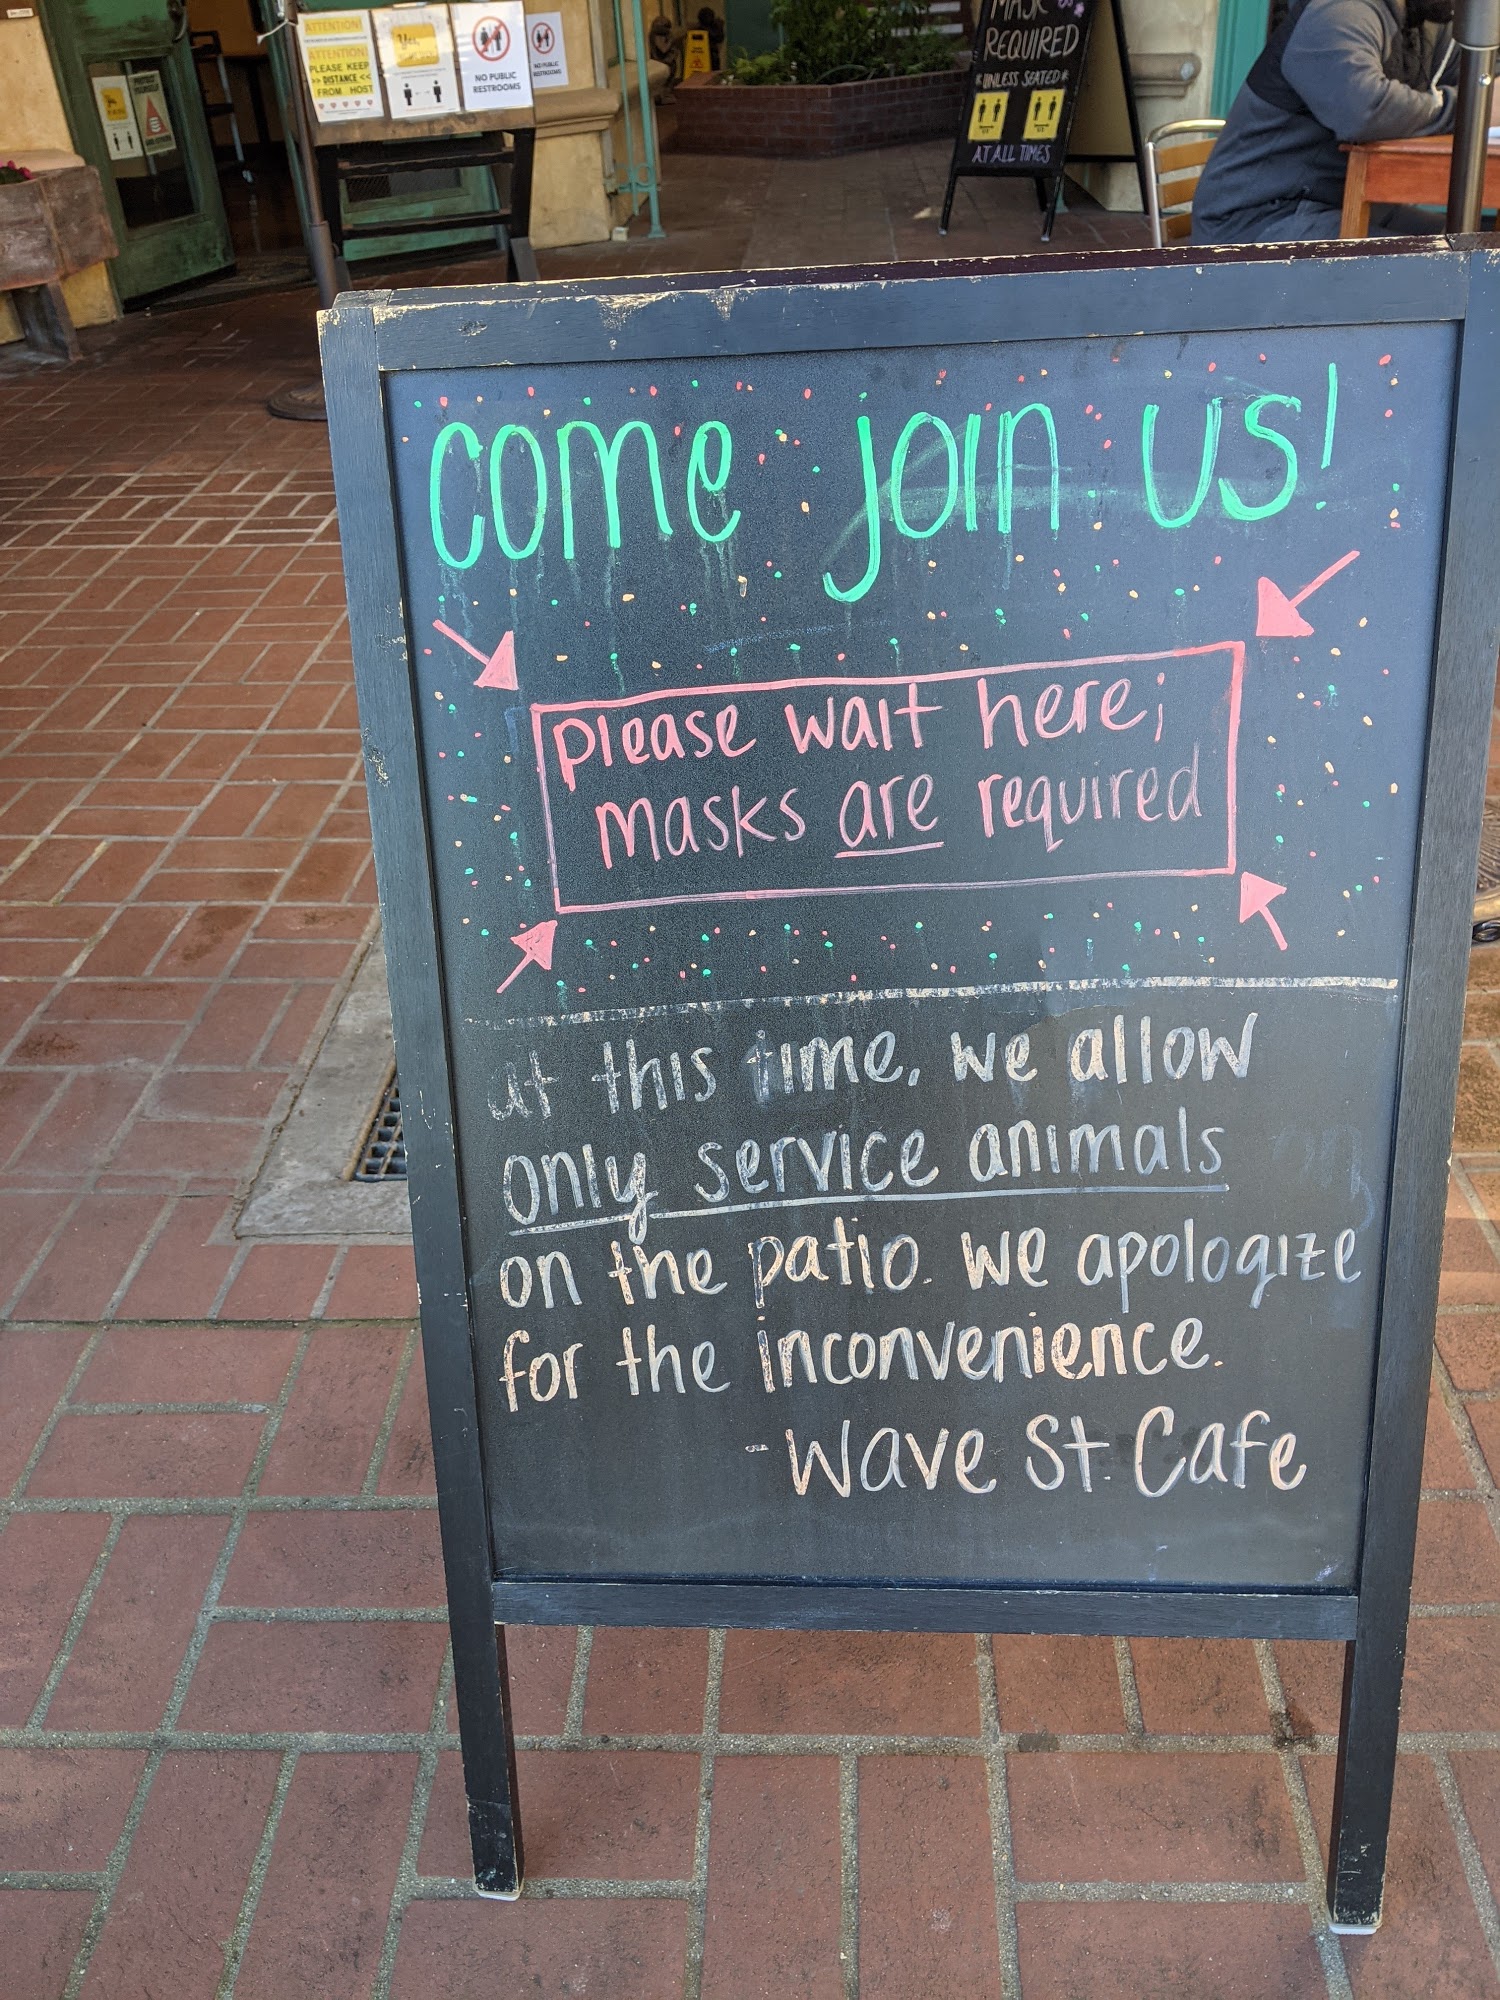 ATTENTION!
ATTENTION!
PLEASE KEEP
>> DISTANCE <<
FROM HOST
Yes,
NO PUBLIC
RESTROOMS
NO PUBLIC
RESTROOMS
MASK
REQUIRED
*UNLESS SEATED*
AT ALL TIMES
come join us!
please wait here;
masks are required
at this time, we allow
only service animals
on the patio. we apologize
for the inconvenience.
- Wave St. Cafe